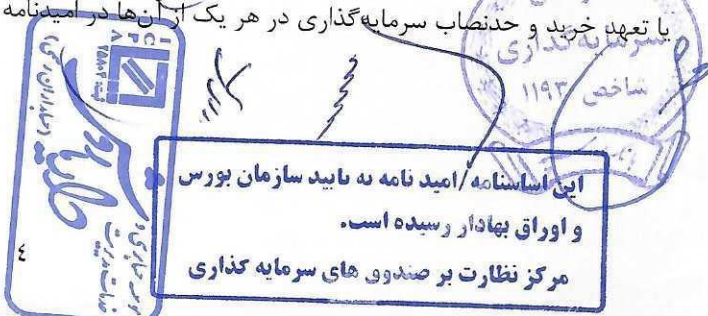 یا تعهد خرید و حدنصاب سرمایه‌گذاری در هر یک از آن‌ها در امیدنامه
سرمایه گذاری
شاخص
۱۱۹۳
این اساسنامه/امید نامه به تایید سازمان بورس
و اوراق بهادار رسیده است.
مرکز نظارت بر صندوق های سرمایه گذاری
I C P A
ثبت: ۲۵۸۰۲
(حسابداران رسمی)
خدمات مدیریت
٤